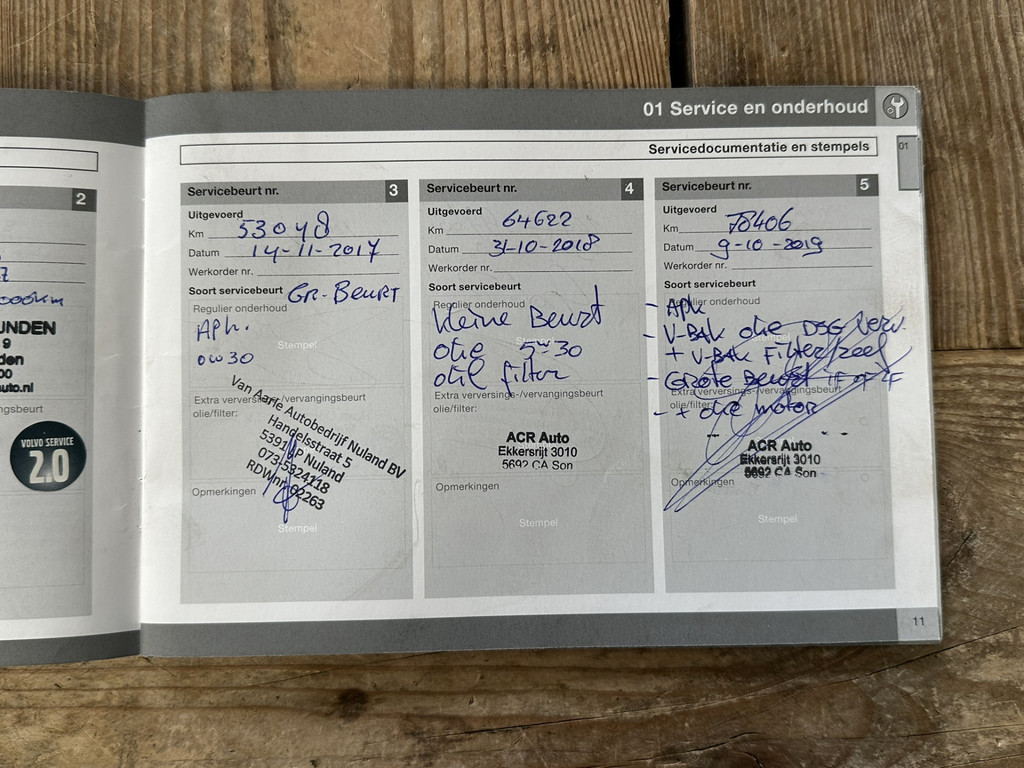 2
7
000km
UNDEN
9
den
00
auto.nl
gsbeurt
VOLVO SERVICE
2.0
01 Service en onderhoud
01
Servicedocumentatie en stempels
Servicebeurt nr. 3
Uitgevoerd
Km 53048
Datum 14-11-2017
Werkorder nr.
Soort servicebeurt GR-BEURT
Regulier onderhoud
APk.
0W30
Stempel
Extra verversings-/vervangingsbeurt
olie/filter:
Van Aarle Autobedrijf Nuland BV
Handelsstraat 5
5391 P Nuland
073-5324118
RDWnr. 02263
Opmerkingen
Stempel
Servicebeurt nr. 4
Uitgevoerd
Km 64622
Datum 31-10-2018
Werkorder nr.
Soort servicebeurt
Regulier onderhoud
kleine Beurt
olie 5w30
olie filter
Extra verversings-/vervangingsbeurt
olie/filter:
ACR Auto
Ekkersrijt 3010
5692 CA Son
Opmerkingen
Stempel
Servicebeurt nr. 5
Uitgevoerd
Km 78406
Datum 9-10-2019
Werkorder nr.
Soort servicebeurt
Regulier onderhoud
- APk
- V-BAk olie DSG verv.
+ V-BAk Filter
- GROTE Beurt
Extra verversings-/vervangingsbeurt
olie/filter:
- + olie motor
ACR Auto
Ekkersrijt 3010
5692 CA Son
Opmerkingen
Stempel
11